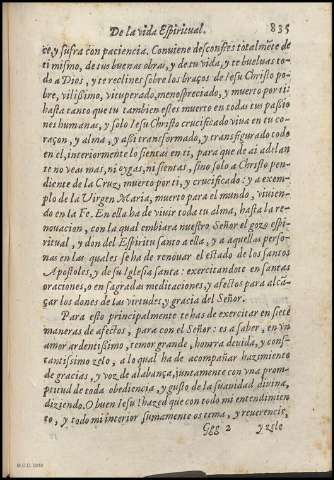 De la vida Espiritual. 835
ce, y sufra con paciencia. Conviene desconfies totalmẽte de
ti mismo, de tus buenas obras, y de tu vida, y te buelvas to-
do a Dios, y te reclines sobre los braços de Iesu Christo po-
bre, vilissimo, vituperado, menospreciado, y muerto por ti:
hasta tanto que tu tambien estes muerto en todas tus passio
nes humanas, y solo Iesu Christo crucificado viva en tu co-
raçon, y alma, y assi transformado, y transfigurado todo
en el, interiormente lo sientas en ti, para que de ai adelan
te no veas mas, ni oygas, ni sientas, sino solo a Christo pen-
diente de la Cruz, muerto por ti, y crucificado: y a exem-
plo de la Virgen Maria, muerto para el mundo, vivien-
do en la Fe. En ella ha de vivir toda tu alma, hasta la re-
novacion, con la qual embiara nuestro Señor el gozo espi-
ritual, y don del Espiritu santo a ella, y a aquellas perso-
nas en las quales se ha de renovar el estado de los santos
Apostoles, y de su Iglesia santa: exercitandote en santas
oraciones, o en sagradas meditaciones, y afectos para alcã-
çar los dones de las virtudes, y gracia del Señor.
Para esto principalmente te has de exercitar en siete
maneras de afectos, para con el Señor: es a saber, en vn
amor ardentissimo, temor grande, honrra devida, y cons-
tantissimo zelo, a lo qual ha de acompañar hazimiento
de gracias, y voz de alabança, juntamente con vna prom-
ptitud de toda obediencia, y gusto de la suavidad divina,
diziendo. O buen Iesu! hazed que con todo mi entendimien
to, y todo mi interior sumamente os tema, y reverencie,
Ggg 2 y zele